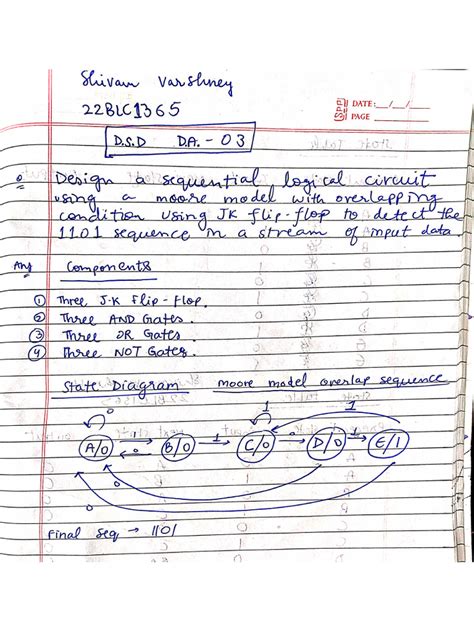 Shivam Varshney
22BLC1365
DATE: __/__/__
PAGE
D.S.D D.A. - 03
Q Design a sequential logical circuit
using a moore model with overlapping
condition using JK flip-flop to detect the
1101 sequence in a stream of input data.
Ans Components
① Three J-K flip-flop.
② Three AND Gates.
③ Three OR Gates
④ Three NOT Gates.
State Diagram moore model overlap sequence
0 1 1
A/0 1 0 B/0 1 C/0 0 D/0 1 E/1
0
0
Final Seq → 1101